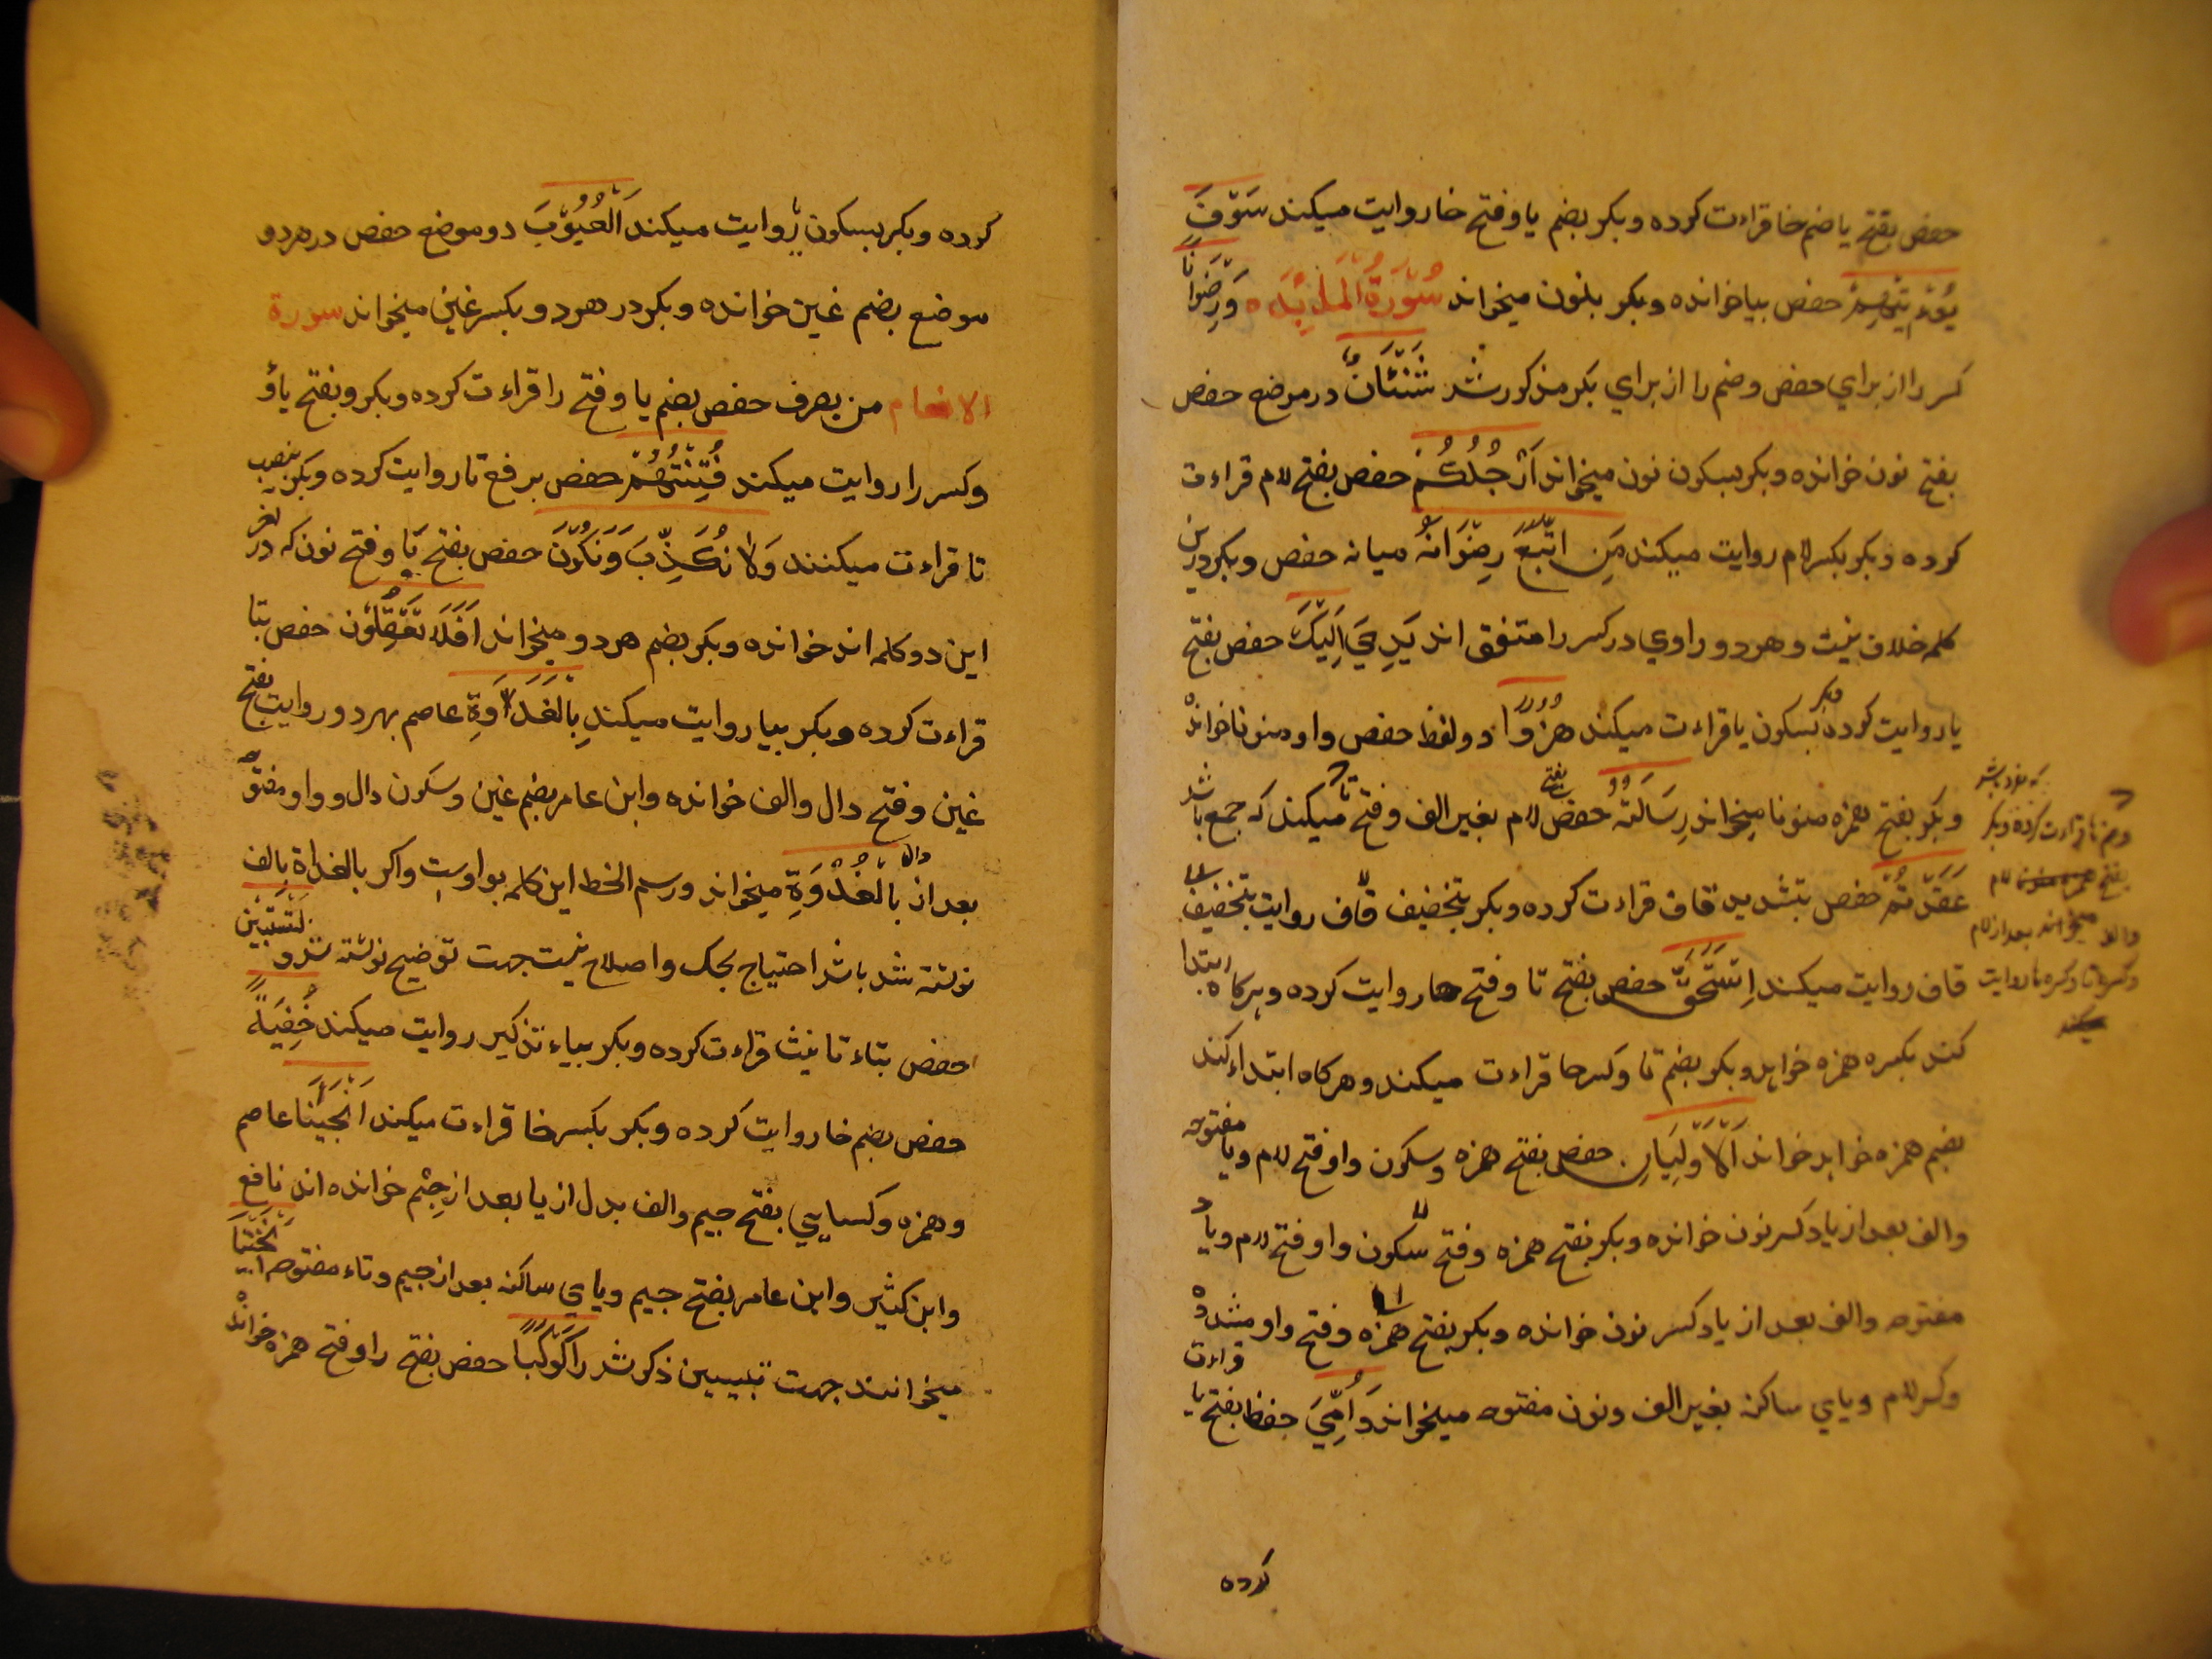 حفص بفتح یا ضم خا قراءت کرده وبکر بضم یا وفتح خا روایت میکند سَوْفَ
یُؤْتِیْهِمْ حفص بیا خوانده وبکر بنون میخواند سُوْرَةُ الْمَائِدَه وَرِضْوَانًا
کسر را از برای حفص وضم را از برای بکر مذکور شد شَنَئَانُ در موضع حفص
بفتح نون خوانده وبکر بسکون نون میخواند اَرْجُلَکُمْ حفص بفتح لام قراءت
کرده وبکر بکسر لام روایت میکند مَنِ اتَّبَعَ رِضْوَانَهُ میانه حفص وبکر درین
کلمه خلاف نیست وهر دو راوی در کسر را متفق اند یَدِیَ اِلَیْكَ حفص بفتح
یا روایت کرده وبکر بسکون یا قراءت میکند هُزُوًا دو لفظ حفص واو منونا خوانده
وبکر بفتح همزه منونا میخواند رِسَالَتَهُ حفص بفتح لام بغیر الف وفتح تا میکند که جمع باشد
عَقَّدْتُمْ حفص بتشدید قاف قراءت کرده وبکر بتخفیف قاف روایت بتخفیف
قاف روایت میکند اِسْتَحَقَّ حفص بفتح تا وفتح حا روایت کرده وهرکاه ابتدا
کند بکسره همزه خواهد وبکر بضم تا وکسر حا قراءت میکند وهرکاه ابتداء کند
بضم همزه خواهد خواند اَلْاَوْلَیَانِ حفص بفتح همزه وسکون واو فتح لام ویا مفتوحه
والف بعد از یا وکسر نون خوانده وبکر بفتح همزه وفتح سکون واو فتح لام ویا
مفتوحه والف بعد از یا وکسر نون خوانده وبکر بفتح همزه وفتح واو مشدده
وکسر لام ویای ساکنه بغیر الف ونون مفتوحه میخواند وَاُمِّیَ حفظ بفتح یا قراءت
کرده
وضم تا قراءت کرده وبکر
میخواند بعد از لام
وکسر تا وکسره ها روایت
میکند
کرده وبکر بسکون یا روایت میکند اَلْغُیُوْبَ دو موضع حفص در هر دو
موضع بضم غین خوانده وبکر در هر دو بکسر غین میخواند سورة
الانعام من یصرف حفص بضم یا وفتح را قراءت کرده وبکر وبفتح یاؤ
وکسر را روایت میکند فِتْنَتُهُمْ حفص برفع تا روایت کرده وبکر بنصب
تا قراءت میکنند وَلَا نُکَذِّبَ وَنَکُوْنَ حفص بفتح با وفتح نون که در آخر
این دو کلمه اند خوانده وبکر بضم هر دو میخواند اَفَلَا تَعْقِلُوْن حفص بتا
قراءت کرده وبکر بیا روایت میکند بِالْغَدَاوَةِ عاصم بهر دو روایت بفتح
غین وفتح دال والف خوانده وابن عامر بضم غین وسکون دال وواو مفتوحه
بعد از دال بِالْغُدْوَةِ میخواند ورسم الخط این کلمه بواوست واکر بالغداة بالف
نوشته شد باشد احتیاج بحک واصلاح نیست جهت توضیح نوشته شد ولتستبین
حفص بتاء تانیث قراءت کرده وبکر بیاء تذکیر روایت میکند خُفْیَةً
حفص بضم خا روایت کرده وبکر بکسر خا قراءت میکند اَنْجَیٰنَا عاصم
وهمزه وکسایی بفتح جیم والف بدل از یا بعد از جِیْم خوانده اند نافع
وابن کثیر وابن عامر بفتح جیم ویای ساکنه بعد از جیم وتاء مفتوحه اَنْجَیْتَنَا
میخوانند جهت تبیین ذکر شد رَاٰ کَوْکَبًا حفص بفتح را وفتح همزه خوانده